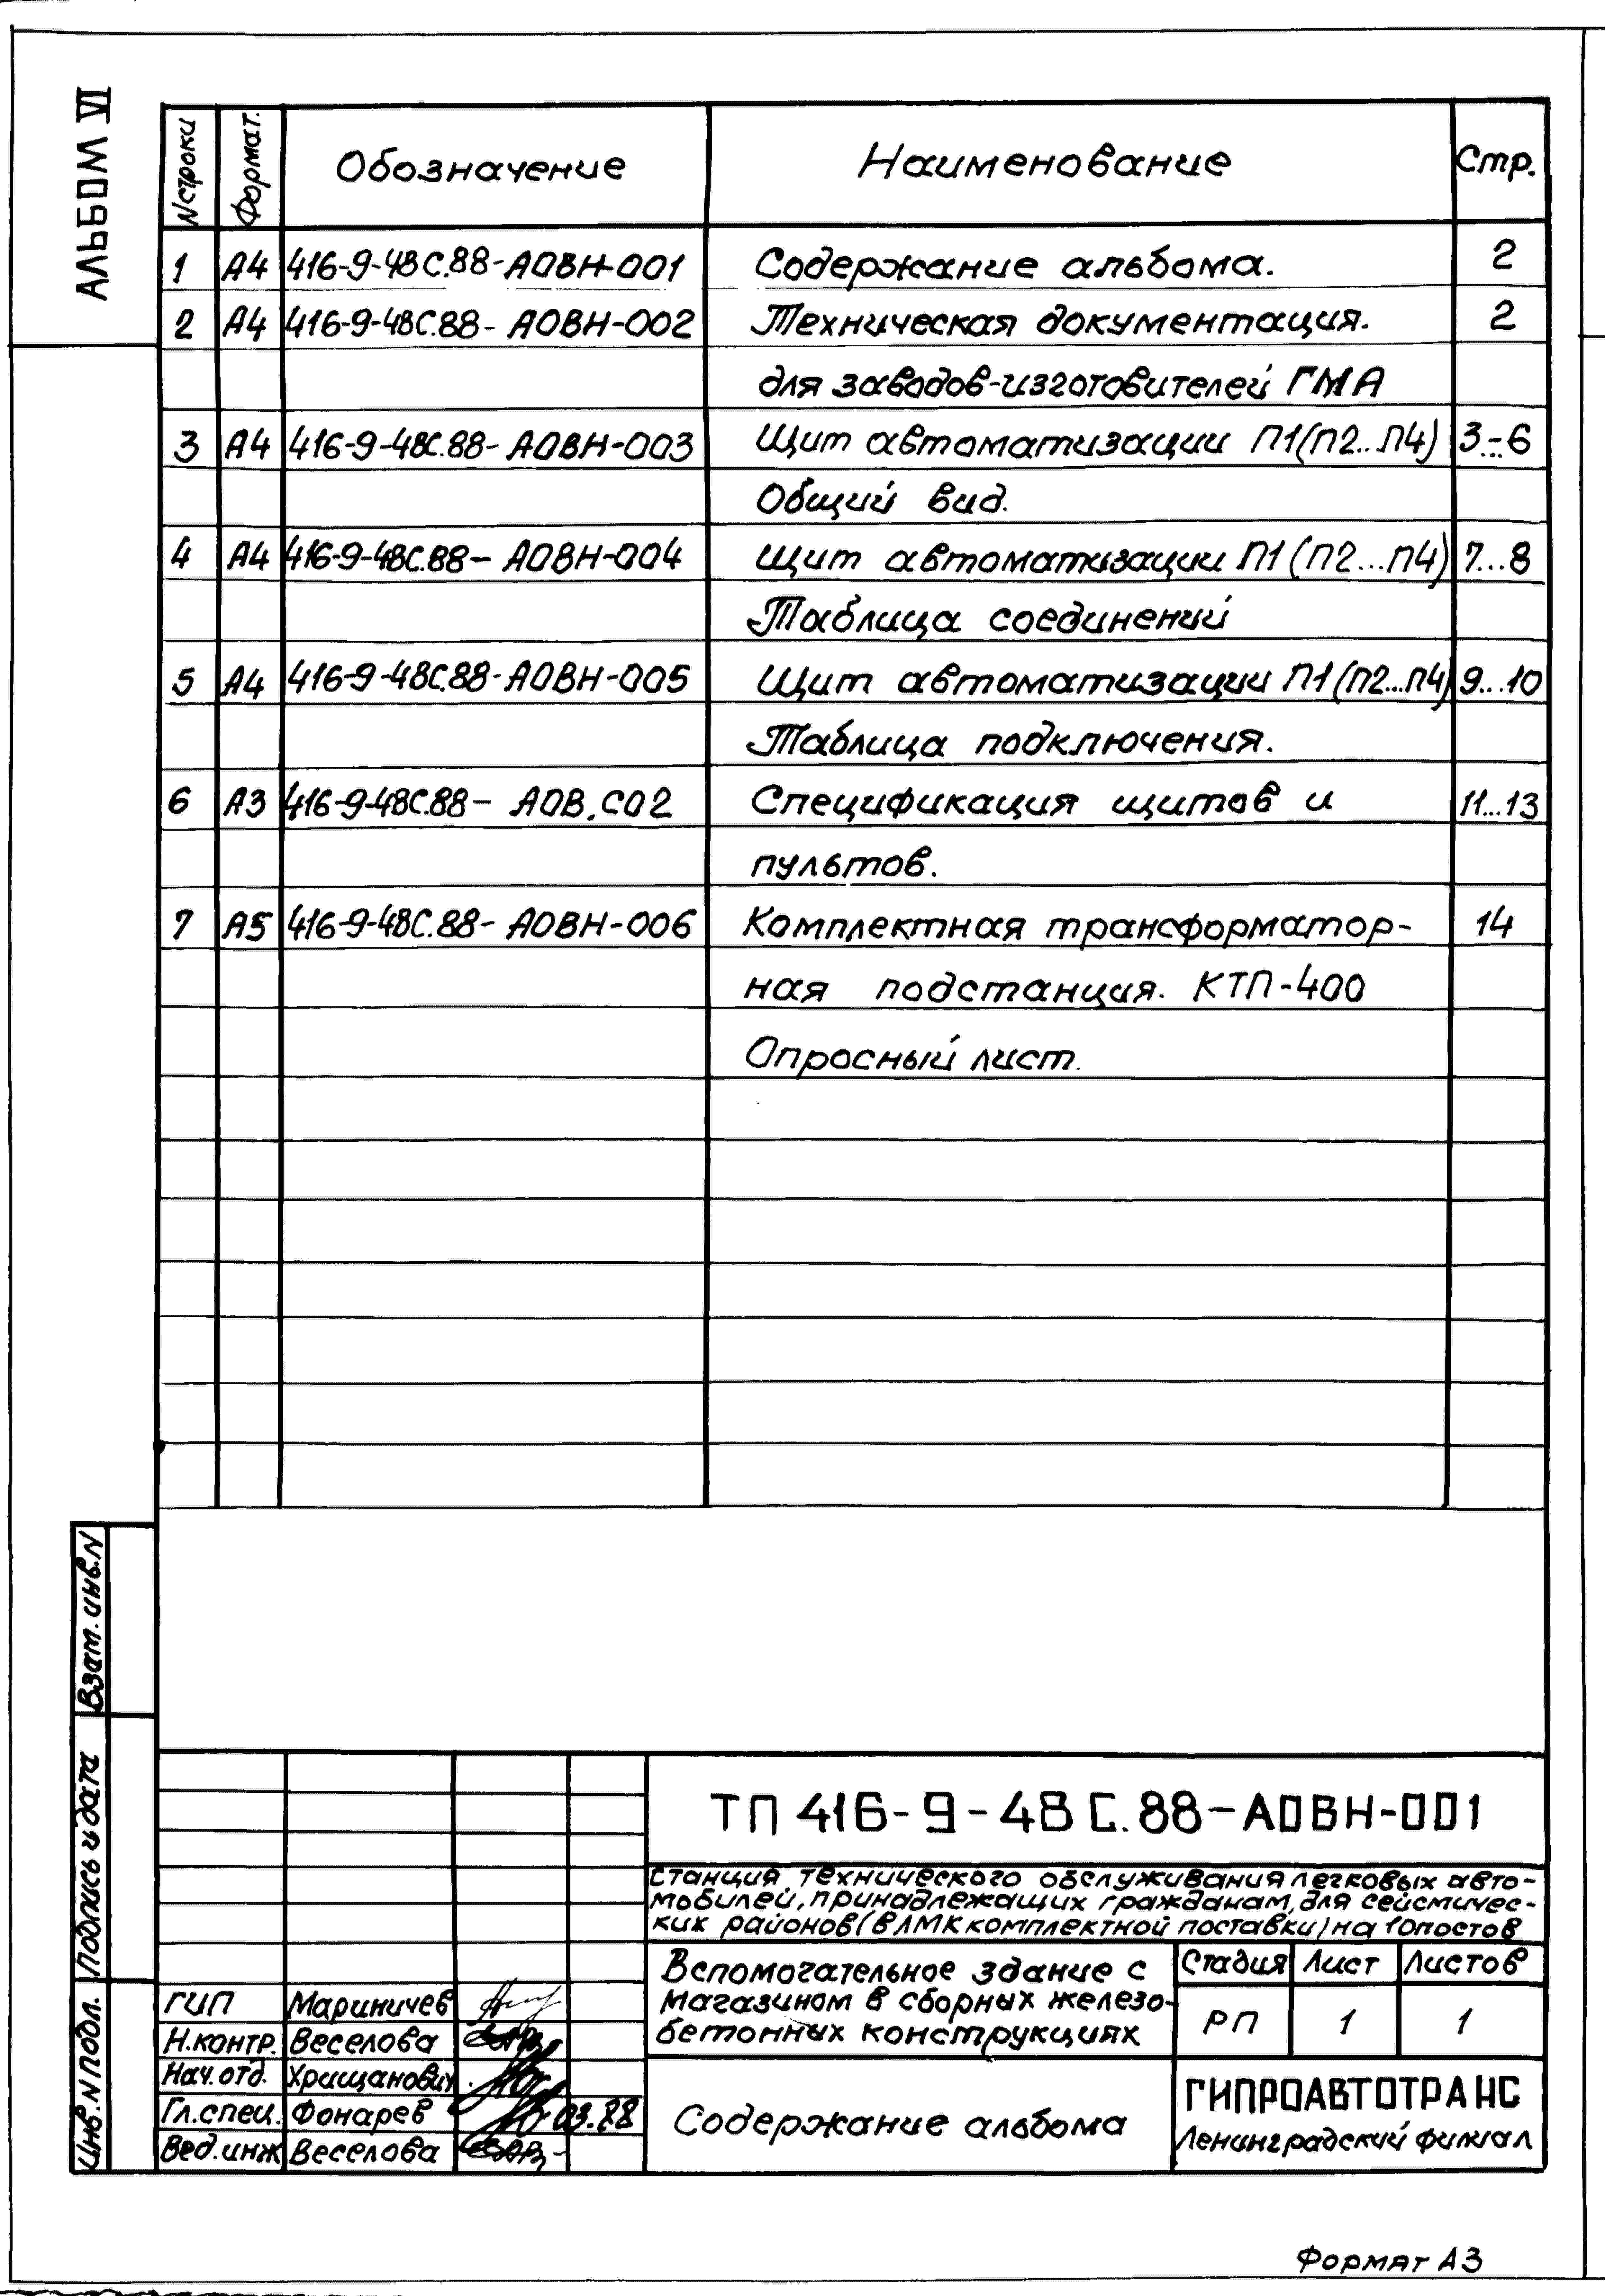 АЛЬБОМ VI
N строки Формат. Обозначение Наименование Стр.
1 А4 416-9-48С.88-АОВН-001 Содержание альбома. 2
2 А4 416-9-48С.88-АОВН-002 Техническая документация. 2
для заводов-изготовителей ГМА
3 А4 416-9-48С.88-АОВН-003 Щит автоматизации П1(П2...П4) 3...6
Общий вид.
4 А4 416-9-48С.88-АОВН-004 Щит автоматизации П1(П2...П4) 7...8
Таблица соединений
5 А4 416-9-48С.88-АОВН-005 Щит автоматизации П1(П2...П4) 9...10
Таблица подключения.
6 А3 416-9-48С.88-АОВ.СО2 Спецификация щитов и 11...13
пультов.
7 А5 416-9-48С.88-АОВН-006 Комплектная трансформатор- 14
ная подстанция. КТП-400
Опросный лист.
Взам. инв. N
Подпись и дата
Инв. N подл.
ТП 416-9-48С.88-АОВН-001
Станция технического обслуживания легковых авто-
мобилей, принадлежащих гражданам, для сейсмичес-
ких районов (в ЛМК комплектной поставки) на 10 постов
Вспомогательное здание с
магазином в сборных железо-
бетонных конструкциях
Стадия Лист Листов
РП 1 1
ГИП Мариничев
Н.контр. Веселова
Нач.отд. Хрищанович
Гл.спец. Фонарев 03.88
Вед.инж Веселова
Содержание альбома
ГИПРОАВТОТРАНС
Ленинградский филиал
Формат А3